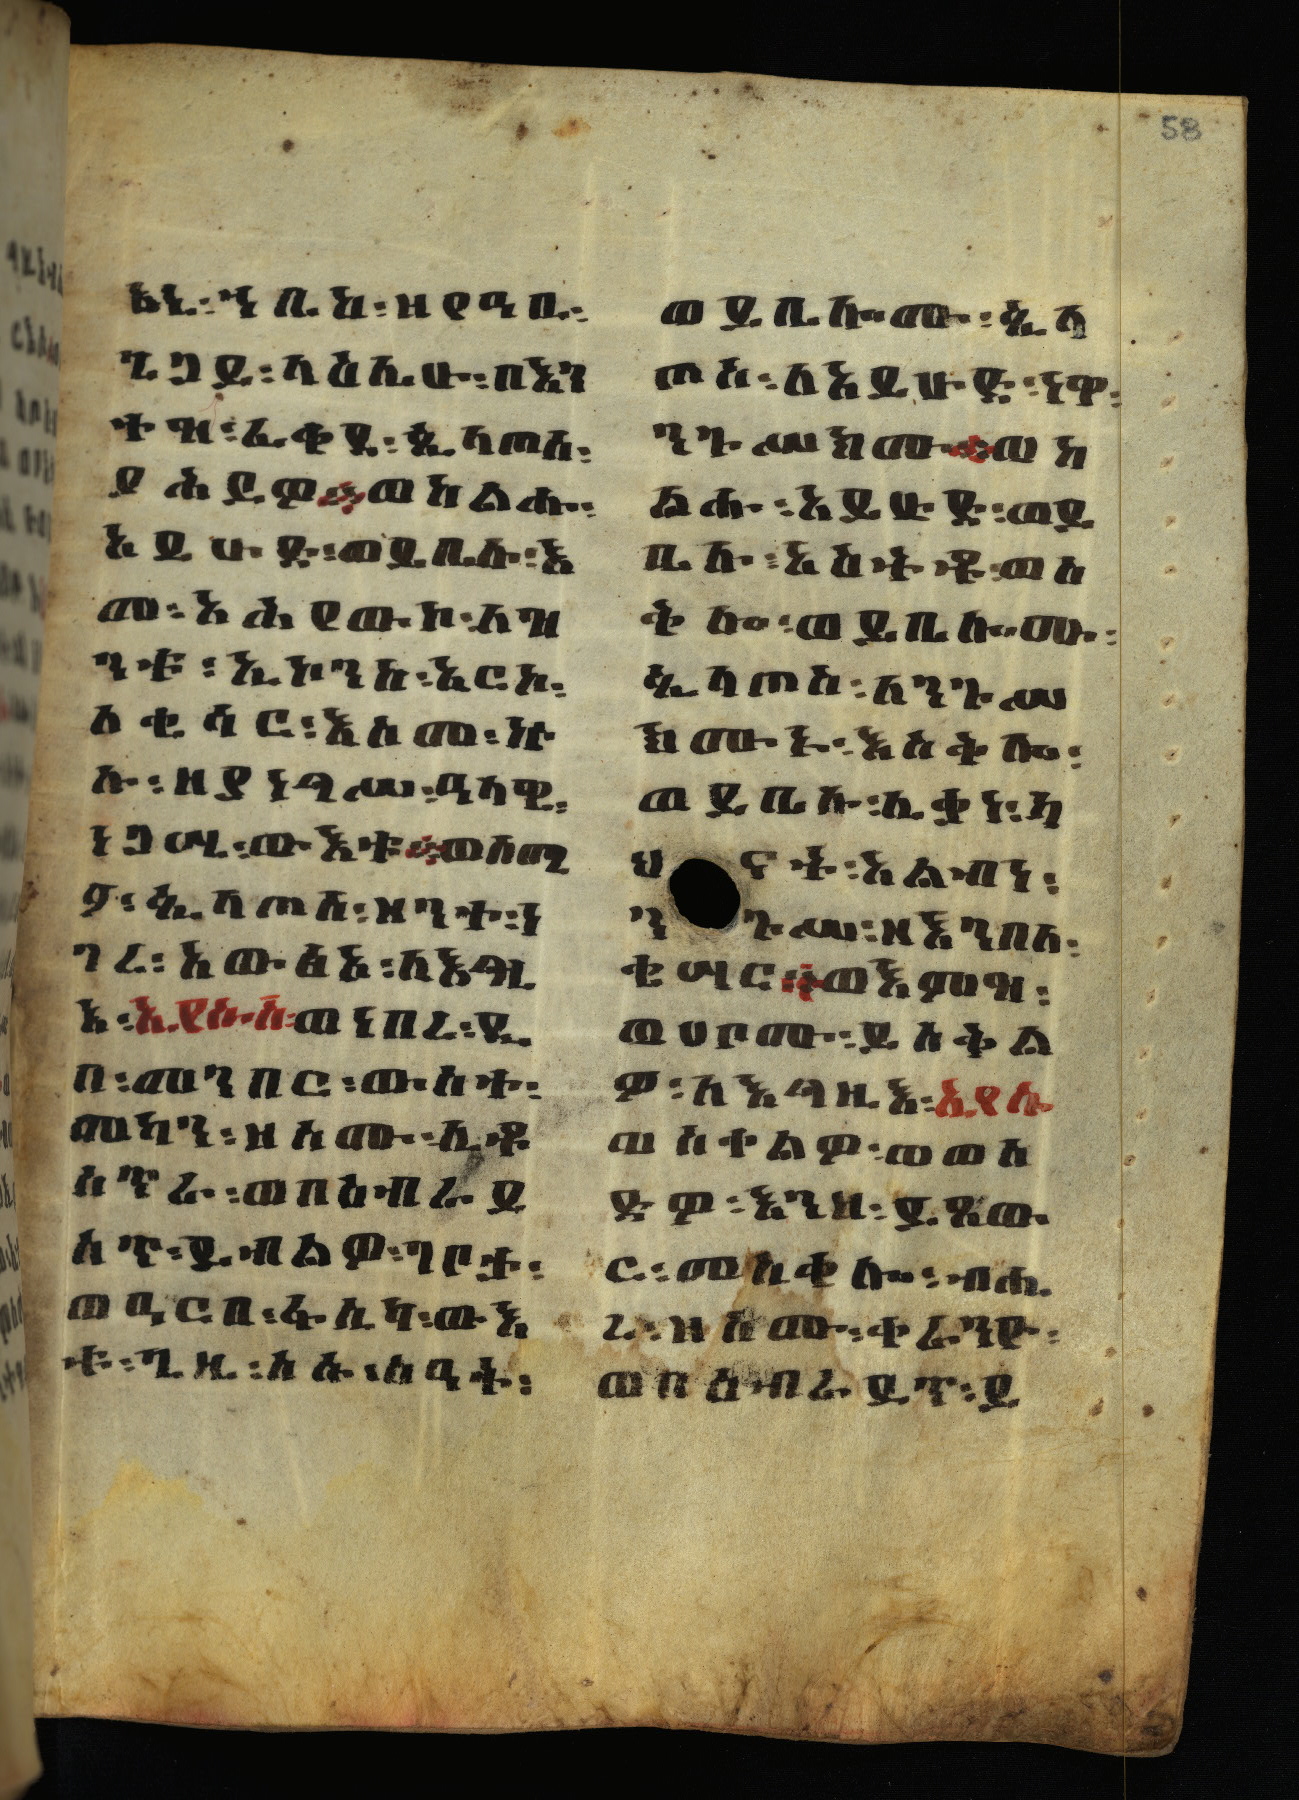 እኒ፡ኀቤከ፡ዘየዓቢ፡
ጌጋይ፡ላዕሌሁ፡በእን
ተዝ፡ፈቀደ፡ጲላጦስ፡
ያሕይዎ፨ወከልሑ፡
አይሁድ፡ወይቤሉ፡እ
መ፡አሕየውኮ፡ለዝ
ንቱ፡ኢኮንከ፡አርኮ፡
ለቄሳር፡እስመ፡ኵ
ሉ፡ዘያነግሥ፡ዓላዊ፡
ነጋሢ፡ውእቱ፨ወሰሚ
ዖ፡ጲላጦስ፡ዘንተ፡ነ
ገረ፡አውፅአ፡ለእግዚ
እ፡ኢየሱስ፡ወነበረ፡ዲ
በ፡መንበር፡ውስተ፡
መካን፡ዘስሙ፡ሊቶ
ስጥራ፡ወበዕብራይ
ስጥ፡ይብልዎ፡ገበታ፡
ወዓርበ፡ፋሲካ፡ውእ
ቱ፡ጊዜ፡ስሱ፡ሰዓት፡
ወይቤሎሙ፡ጲላ
ጦስ፡ለአይሁድ፡ነዋ፡
ንጉሥክሙ፨ወከ
ልሑ፡አይሁድ፡ወይ
ቤሉ፡አእትቶ፡ወስ
ቅሎ፡ወይቤሎሙ፡
ጲላጦስ፡ለንጉሥ
ክሙኑ፡እስቅሎ፡
ወይቤሉ፡ሊቃነ፡ካ
ህናት፡አልብነ፡
ንጉሥ፡ዘእንበለ፡
ቄሣር፨ወእምዝ፡
ወሀቦሙ፡ይስቅል
ዎ፡ለእግዚእ፡ኢየሱ
ስተልዎ፡ወወስ
ድዎ፡እንዘ፡ይጸው
ር፡መስቀሎ፡ብሔ
ረ፡ዘስሙ፡ቀራንዮ፡
ወበዕብራይጥ፡ይ
58